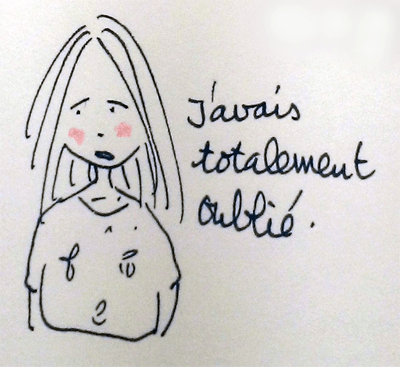 J'avais
totalement
oublié.